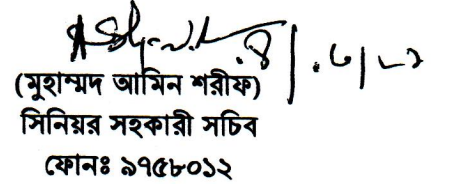 (মুহাম্মদ আমিন শরীফ)
সিনিয়র সহকারী সচিব
ফোনঃ ৯৭৫৮০১২